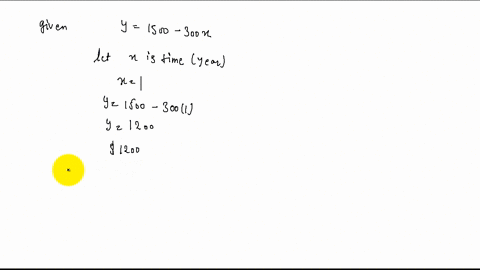 given y = 1500 - 300x
let x is time (year)
x = 1
y = 1500 - 300(1)
y = 1200
$1200